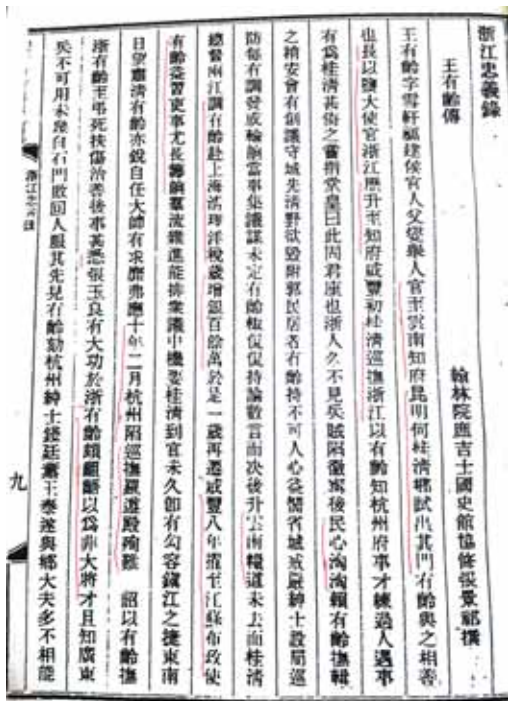 浙江忠義錄
王有齡傳
翰林院庶吉士國史館協修張景祁撰
王有齡字雪軒福建侯官人父燮舉人官至雲南知府昆明何桂清鄉試出其門有齡與之相善
也長以鹽大使官浙江歷升至知府咸豐初桂清巡撫浙江以有齡知杭州府事才練過人遇事
有爲桂清甚倚之嘗指堂皇曰此閣君座也浙人久不見兵賊陷徽甯後民心洶洶賴有齡撫輯
之稍安會有創議守城先清野欲毀附郭民居者有齡持不可人心益固省城戒嚴紳士設局巡
防每有調發或輪餉當事集議謀未定有齡輒侃侃持論數言而決後升雲南糧道未去而桂清
總督兩江調有齡赴上海洋稅歲增銀百餘萬於是一歲再遷咸豐八年擢至江蘇布政使
有齡益習吏事尤長籌餉羣流競進能排衆議中機要桂清到官未久卽有句容鎭江之捷東南
日望肅清有齡亦銳自任大帥有求應弗應十年二月杭州陷巡撫羅遵殿殉難 詔以有齡撫
浙有齡至弔死扶傷治善後事甚悉張玉良有大功於浙有齡頗齟齬以爲非大將才且知廣東
兵不可用未幾自石門敗回人服其先見有齡劾杭州紳士鍾廷王泰遂與鄉大夫多不相能
浙江忠義錄
九